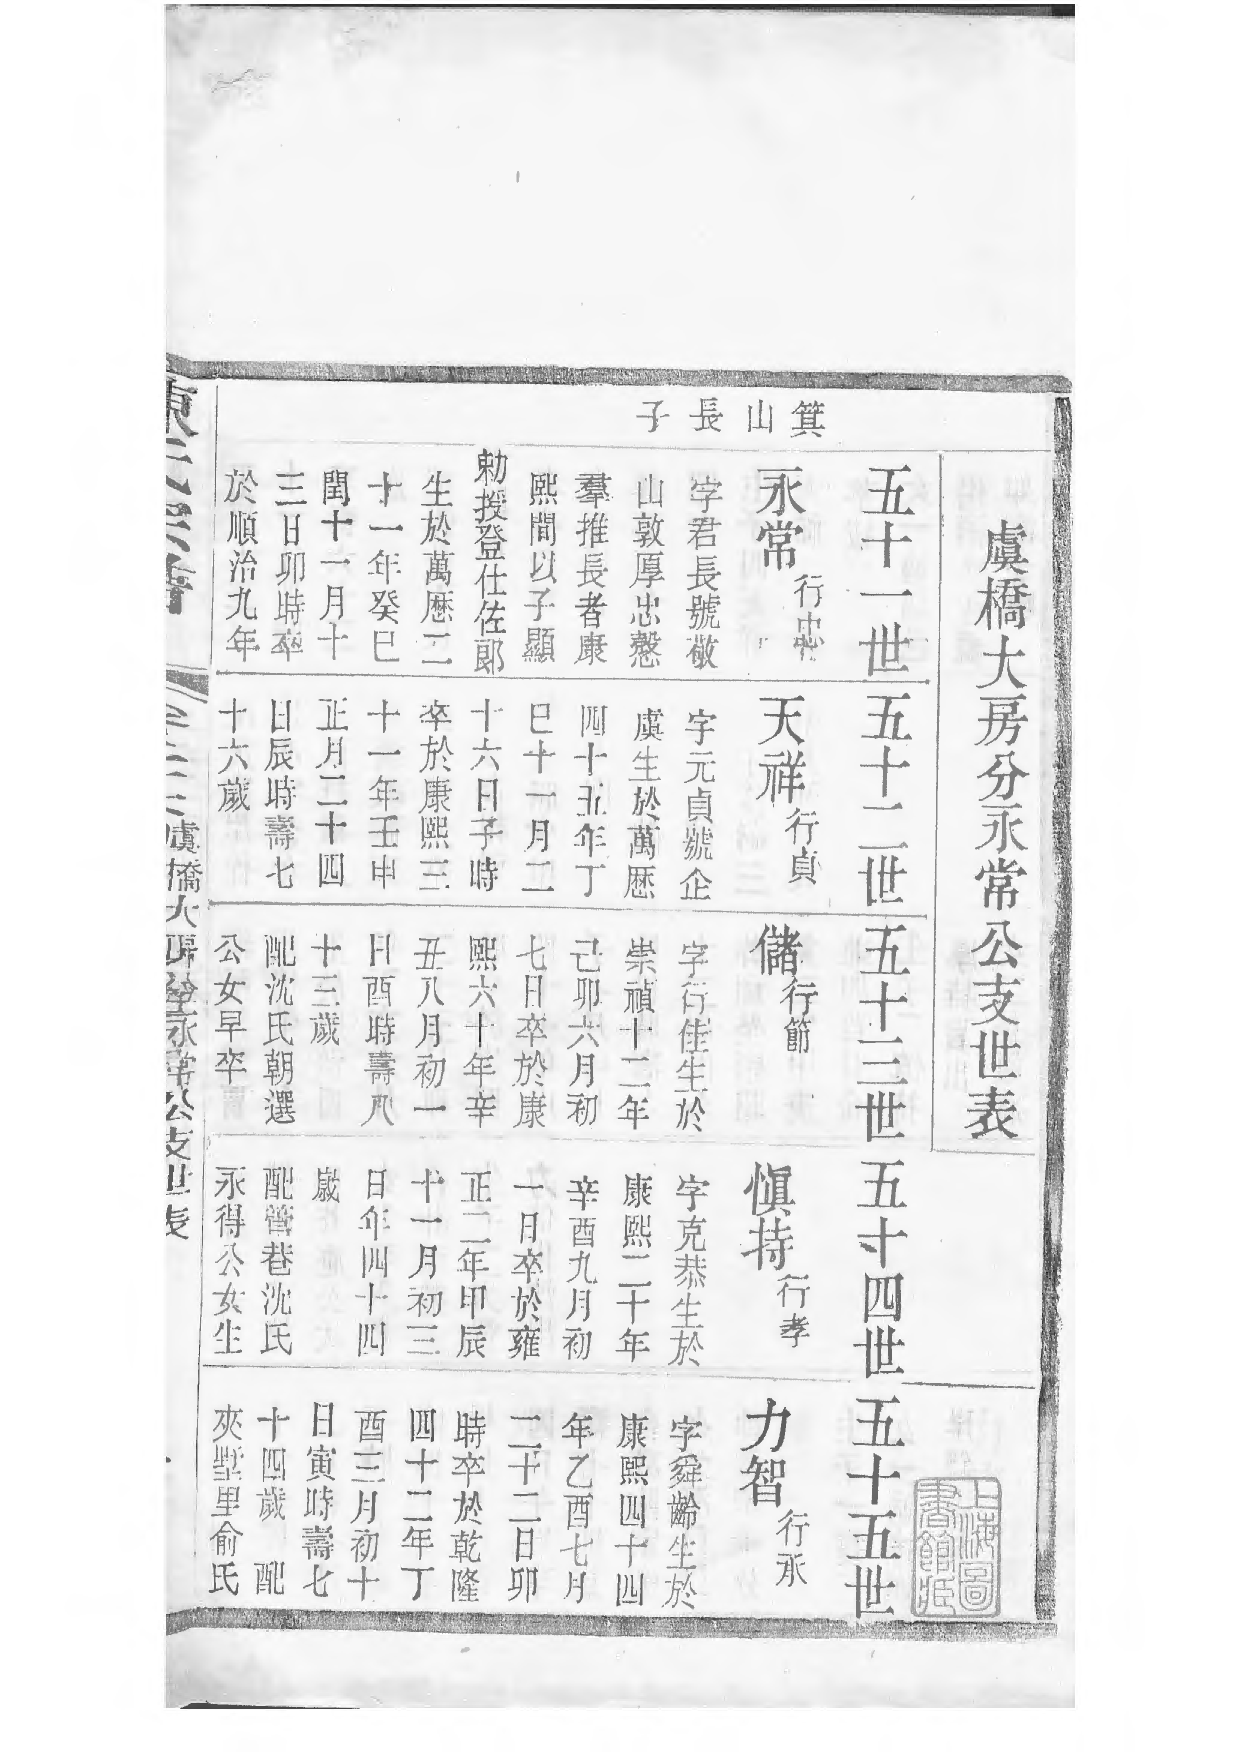 虞橋大房分永常公支世表
箕山長子
五十一世
永常行忠
字君長號敬
山敦厚忠懿
羣推長者康
熙間以子顯
勅授登仕佐郎
生於萬厯二
十一年癸巳
閏十一月十
三日卯時卒
於順治九年
五十二世
天祥行貞
字元貞號企
虞生於萬厯
四十五年丁
巳十一月二
十六日子時
卒於康熙三
十一年壬申
正月二十四
日辰時壽七
十六歲
五十三世
儲行節
字行佳生於
崇禎十二年
己卯六月初
七日卒於康
熙六十年辛
丑八月初一
日酉時壽八
十三歲
配沈氏朝選
公女早卒
五十四世
愼持行孝
字克恭生於
康熙二十年
辛酉九月初
一日卒於雍
正二年甲辰
十一月初三
日年四十四
歲
配管巷沈氏
永得公女生
五十五世
力智行承
字舜齡生於
康熙四十四
年乙酉七月
二十二日卯
時卒於乾隆
四十二年丁
酉三月初十
日寅時壽七
十四歲 配
夾墅里俞氏
氏宗譜
虞橋大房分永常公支世表
上海圖
書館藏